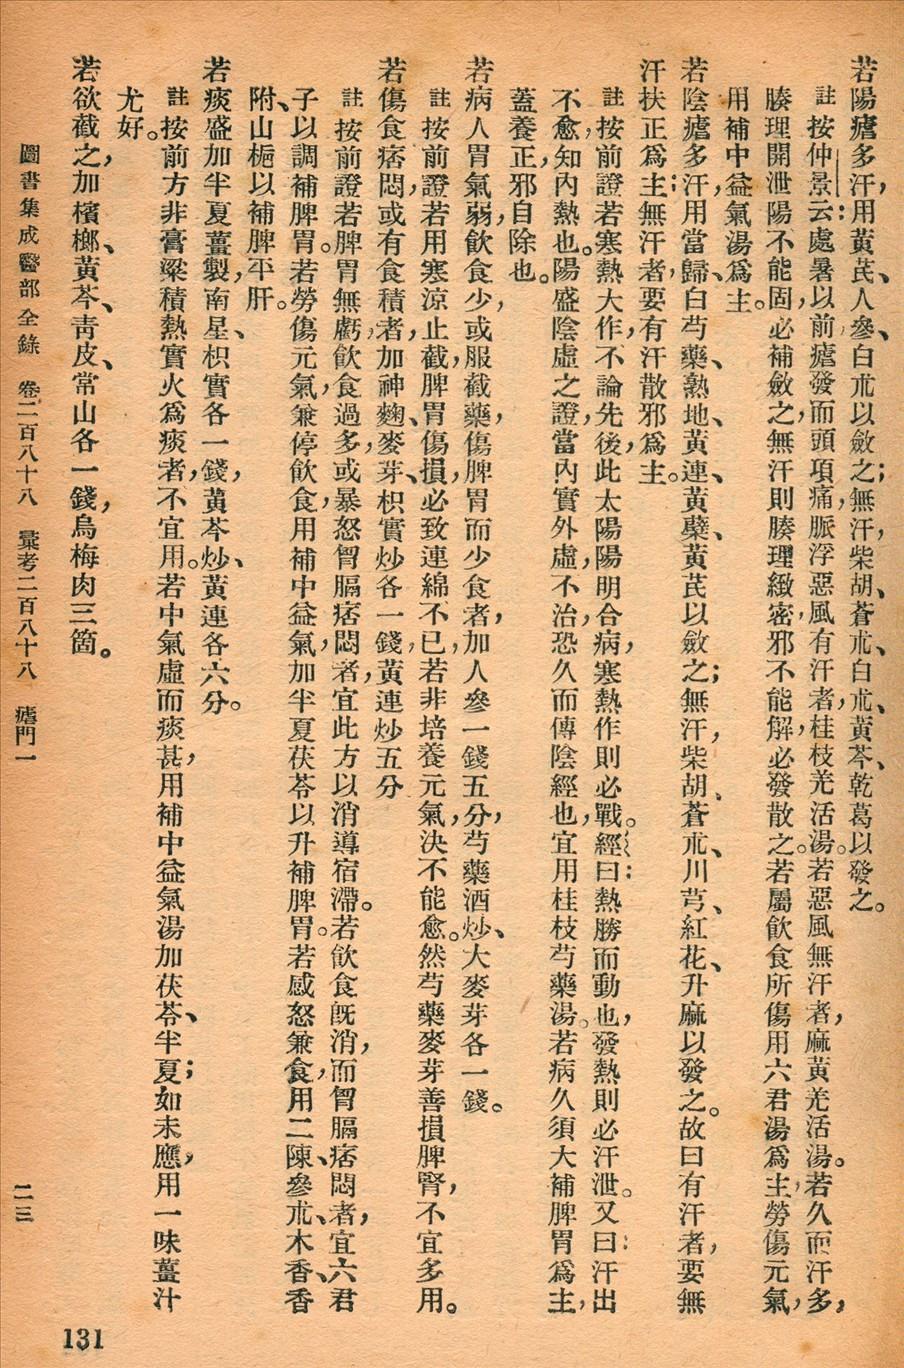 若陽瘧多汗，用黃芪、人參、白朮以斂之；無汗，柴胡、蒼朮、白朮、黃芩、乾葛以發之。
註 按仲景云：處暑以前，瘧發而頭項痛，脈浮惡風有汗者，桂枝羌活湯。若惡風無汗者，麻黃羌活湯。若久而汗多，
腠理開泄，陽不能固，必補斂之，無汗則腠理緻密，邪不能解，必發散之。若屬飲食所傷用六君湯爲主，勞傷元氣，
用補中益氣湯爲主。
若陰瘧多汗，用當歸、白芍藥、熟地、黃連、黃蘗、黃芪以斂之；無汗，柴胡、蒼朮、川芎、紅花、升麻以發之。故曰有汗者，要無
汗扶正爲主；無汗者，要有汗散邪爲主。
註 按前證若寒熱大作，不論先後，此太陽陽明合病，寒熱作則必戰。經曰：熱勝而動也，發熱則必汗泄。又曰：汗出
不愈，知內熱也。陽盛陰虛之證，當內實外虛，不治，恐久而傳陰經也，宜用桂枝芍藥湯。若病久須大補脾胃爲主，
蓋養正，邪自除也。
若病人胃氣弱，飲食少，或服截藥傷脾胃而少食者，加人參一錢五分，芍藥酒炒、大麥芽各一錢。
註 按前，證若用寒涼止截，脾胃傷損，必致連綿不已，若非培養元氣，決不能愈。然芍藥麥芽善損脾腎，不宜多用。
若傷食痞悶，或有食積者，加神麴、麥芽、枳實炒各一錢，黃連炒五分
註 按前證若脾胃無虧，飲食過多，或暴怒胷膈痞悶者，宜此方以消導宿滯。若飲食旣消，而胷膈痞悶者，宜六君
子以調補脾胃。若勞傷元氣，兼停飲食，用補中益氣，加半夏茯苓以升補脾胃。若感怒兼食，用二陳、參朮、木香、香
附、山梔以補脾平肝。
若痰盛加半夏薑製，南星、枳實各一錢，黃芩炒、黃連各六分。
註 按前方非膏粱積熱實火爲痰者，不宜用。若中氣虛而痰甚，用補中益氣湯加茯苓、半夏；如未應，用一味薑汁
尤好。
若欲截之，加檳榔、黃芩、靑皮、常山各一錢，烏梅肉三箇。
圖書集成醫部全錄 卷二百八十八 彙考二百八十八 瘧門一 二三
131